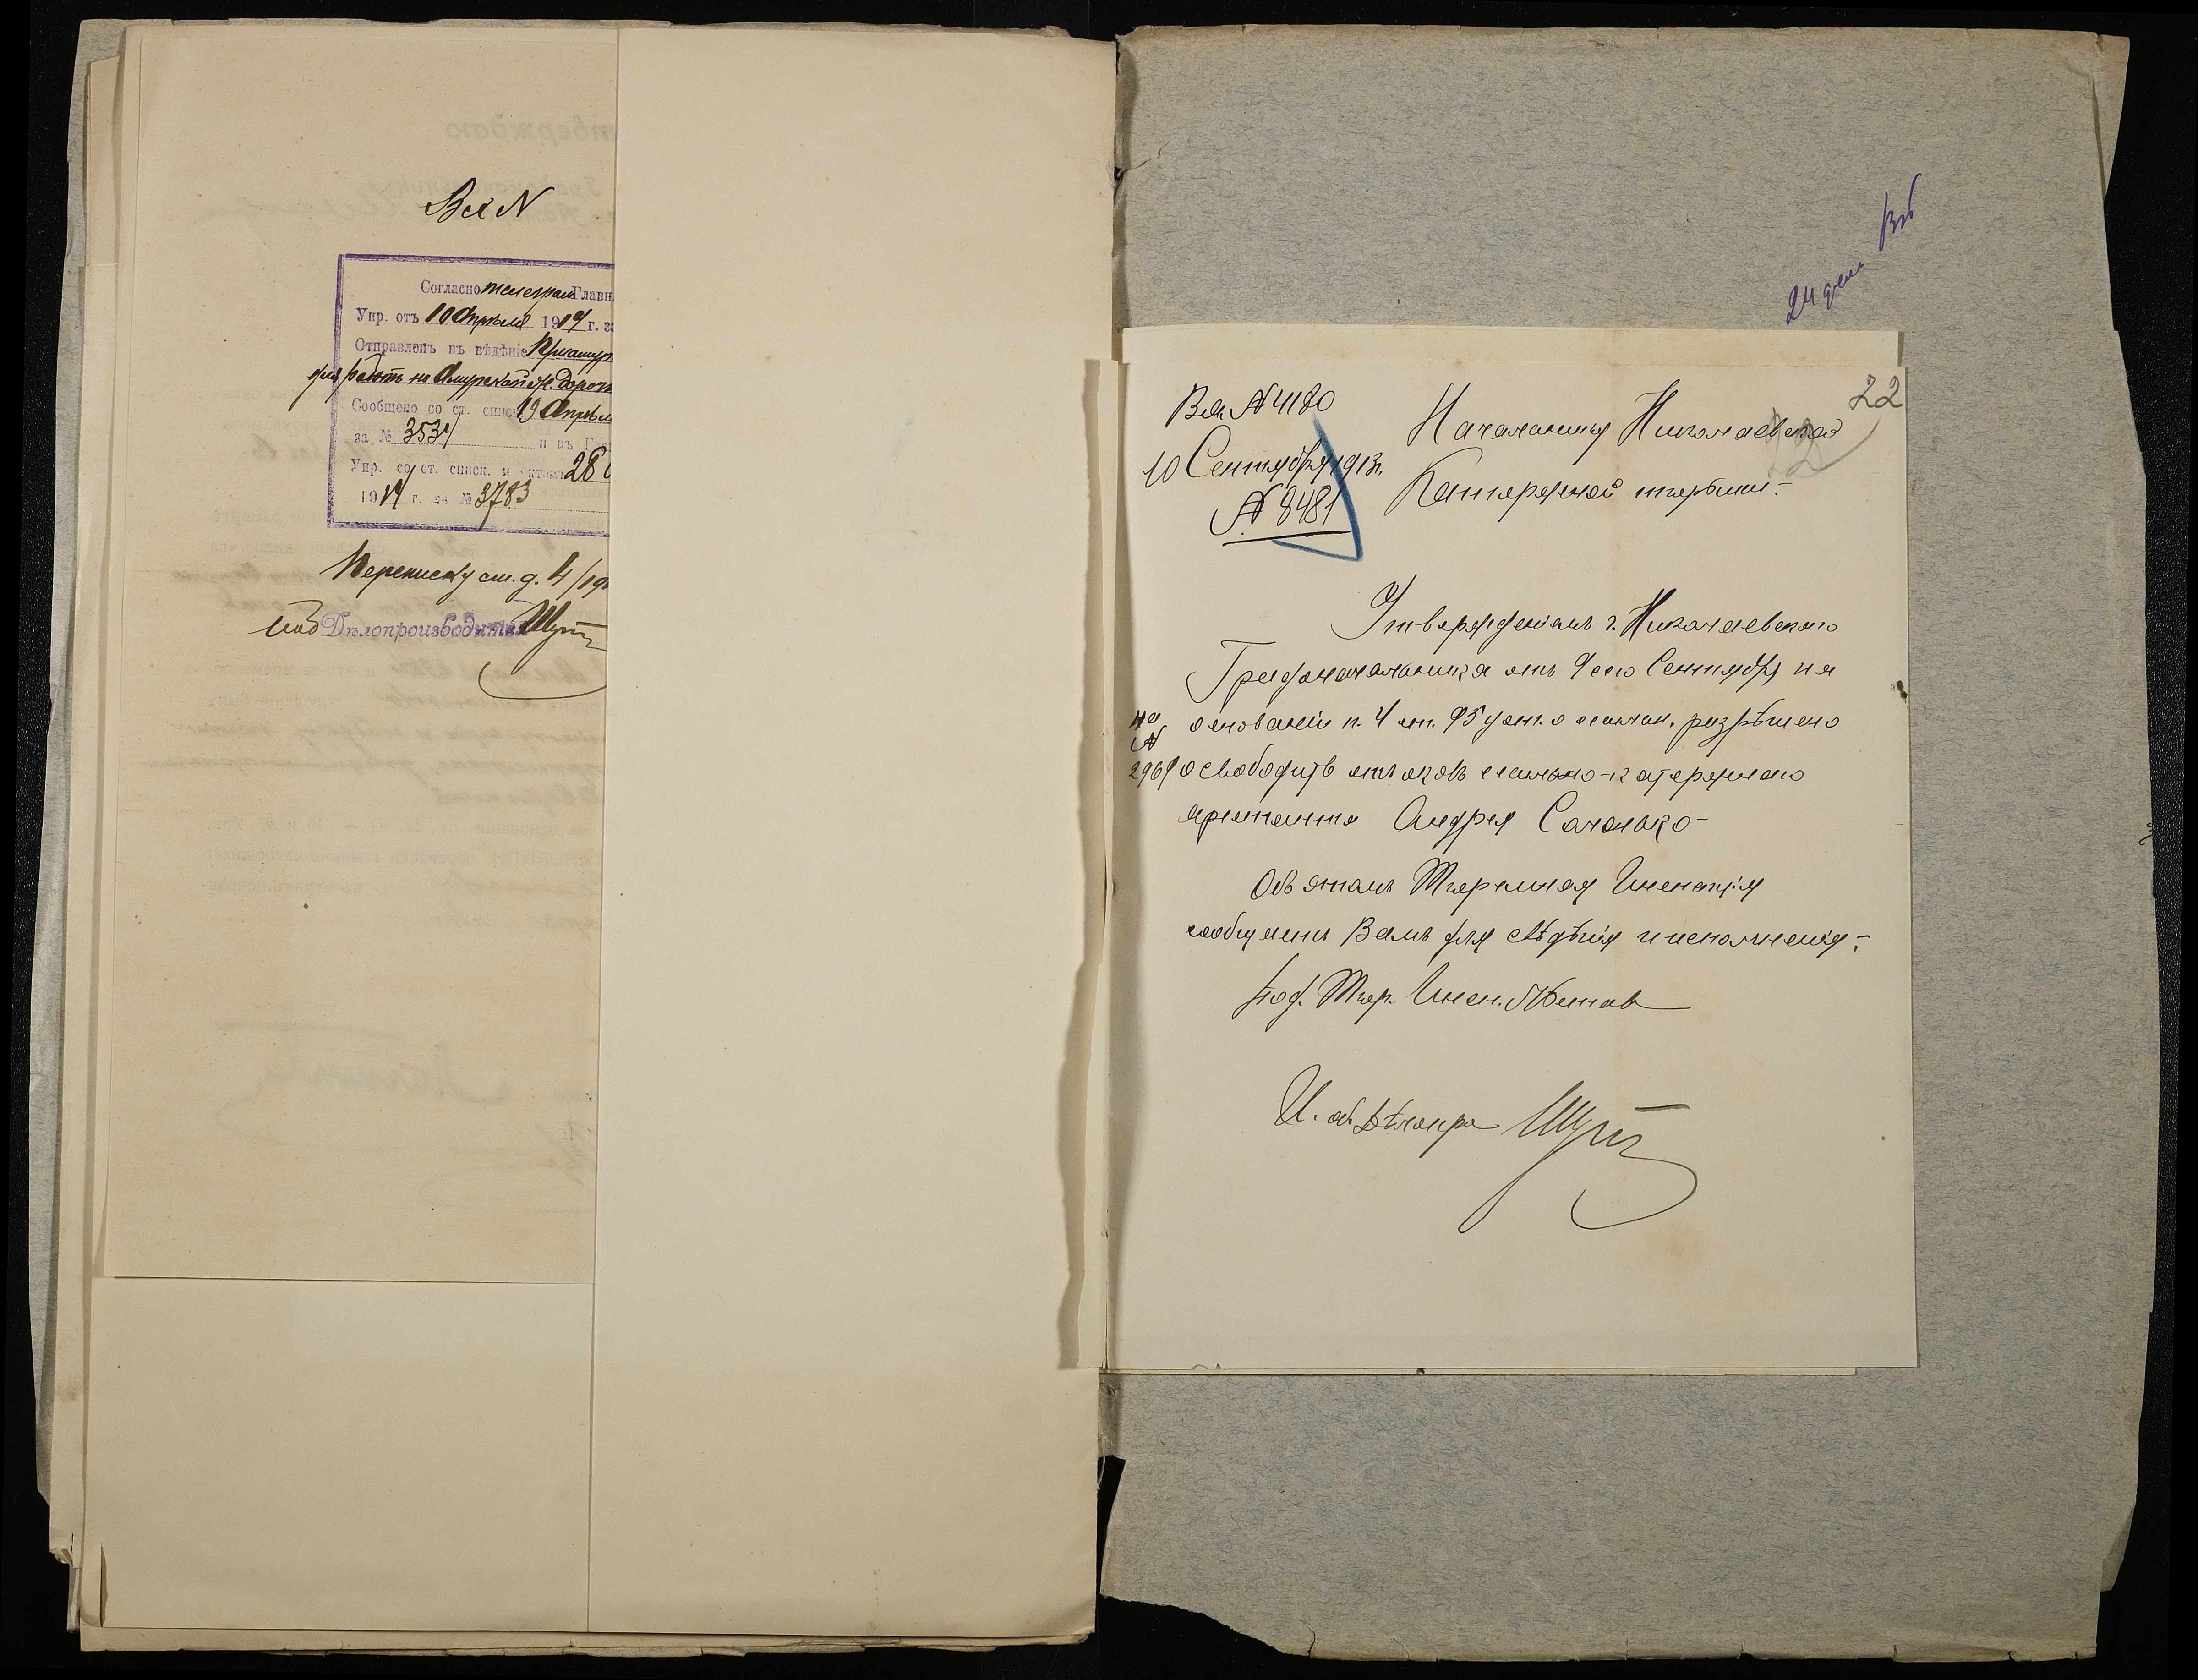 Вх N
Согласно телеграм Главн
Упр. отъ 10 Апрѣля 1914 г. за
Отправленъ въ вѣдѣніе Приамур
для работъ на Амурской ж. дорогѣ
Сообщено со ст. списк 19 Апрѣля
за № 3534 и въ Гл
Упр. со ст. списк. и 28
1914 г. за № 3783
Переписку см. д. 4/191
Дѣлопроизводитель Шульц
24 дека
22
Вх. N 4180
10 Сентября 1913 г.
N 8481
Начальнику Николаевской
Каторжной тюрьмы.
Утвержденіемъ г. Николаевскаго
Градоначальника отъ 9 сего Сентября на
на
N
2969
основаніи п. 4 ст. 95 уст. о ссыльн. разрѣшено
освободить отъ оковъ ссыльно-каторжнаго
арестанта Андрея Сачалко
Объ этомъ Тюремная Инспекція
сообщаетъ Вамъ для свѣдѣнія и исполненія.
Под. Тюр. Инсп.
И. об. Дѣлопр Шульц